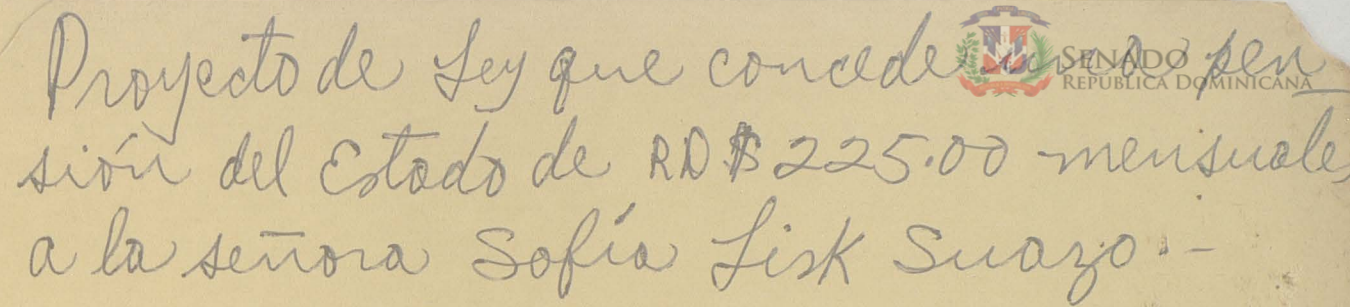 Proyecto de Ley que concede una pen
sión del Estado de RD$225.00 mensuales
a la señora Sofía Lisk Suazo.-
SENADO
REPÚBLICA DOMINICANA